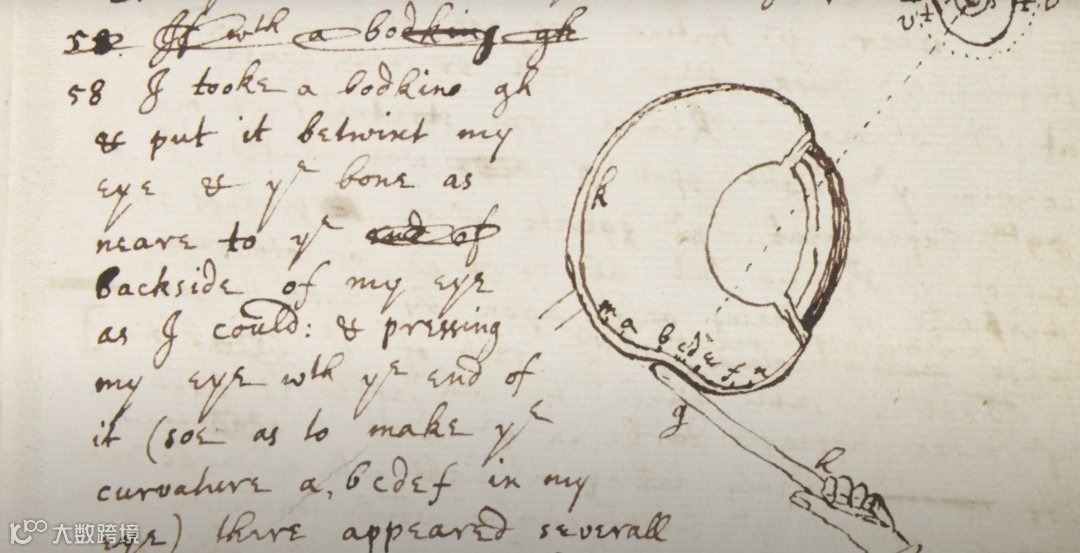 58. If wth a bodking gh
58 I tooke a bodkine gh
& put it betwixt my
eye & ye bone as
neare to ye end of
backside of my eye
as I could: & pressing
my eye wth ye end of
it (soe as to make ye
curvature a, bcdef in my
eye) there appeared severall
k
m a b c d e f n
g
h
大数跨境